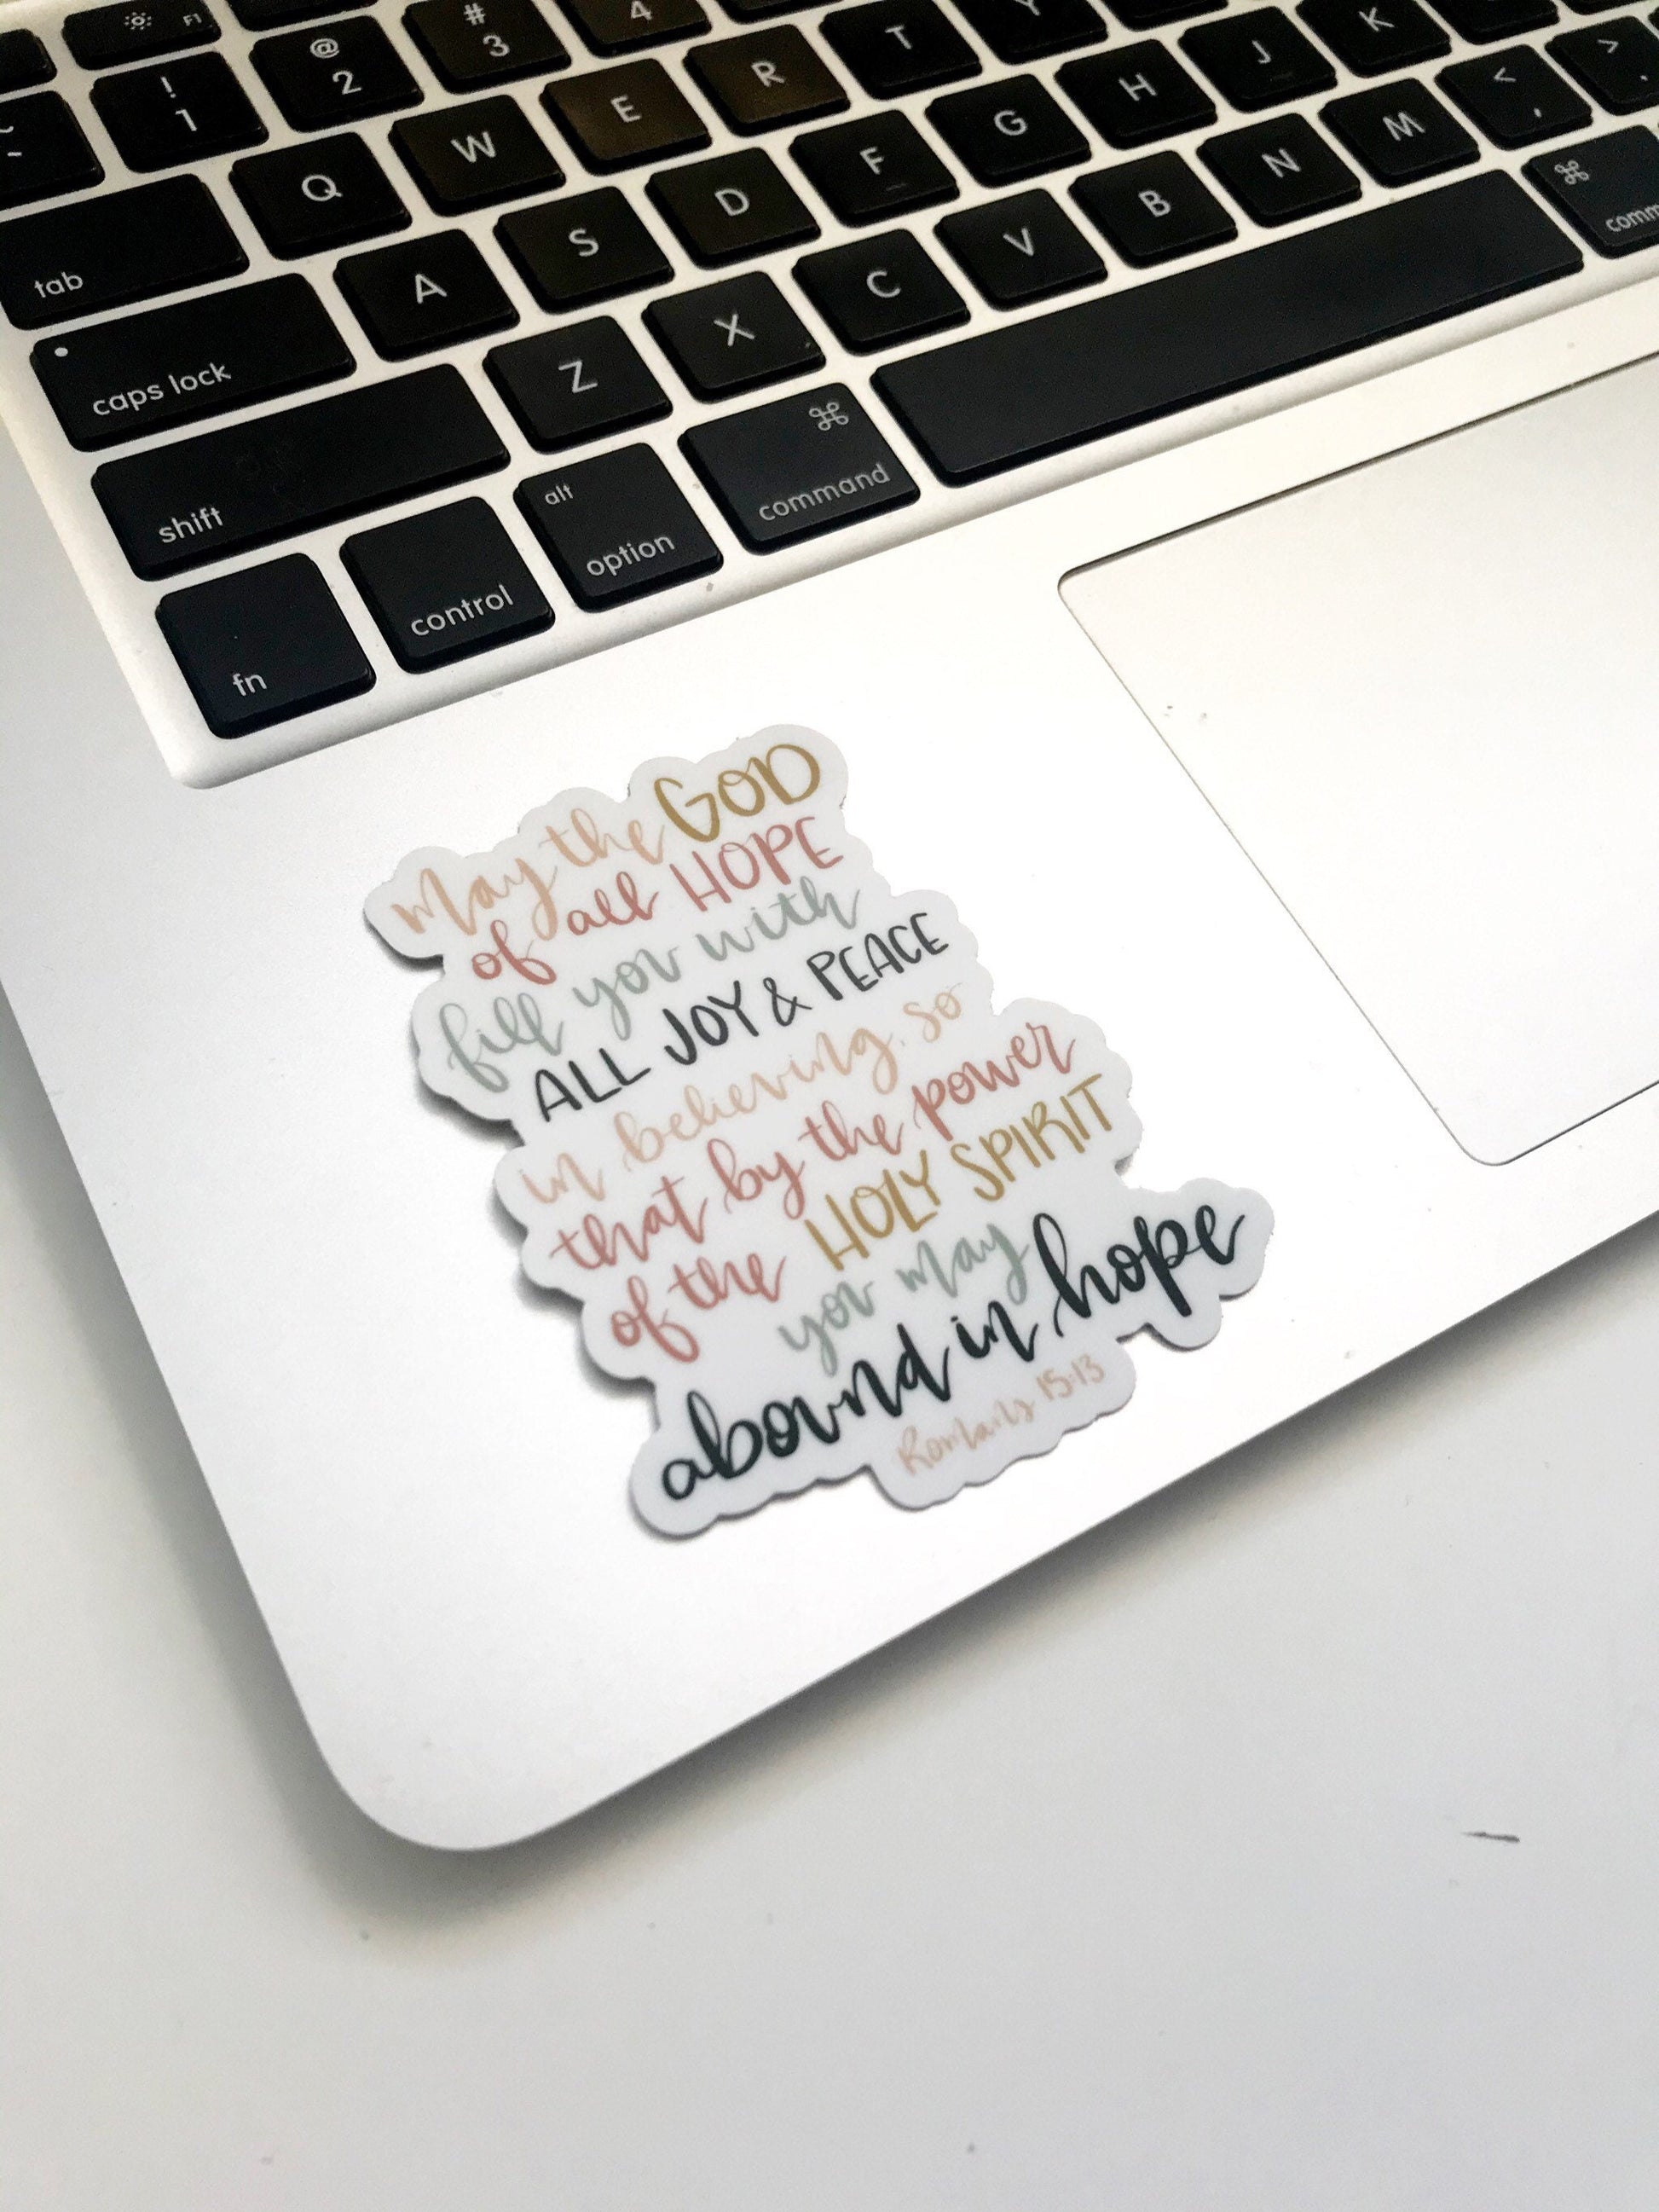 F1
! @ # 4
~ 1 2 3
` Q W E R T Y
tab A S D F G H J K
caps lock Z X C V B N M < , > .
shift
fn control alt option ⌘ command ⌘ comm
May the GOD
of all HOPE
fill you with
ALL JOY & PEACE
in believing, so
that by the power
of the HOLY SPIRIT
you may
abound in hope
Romans 15:13